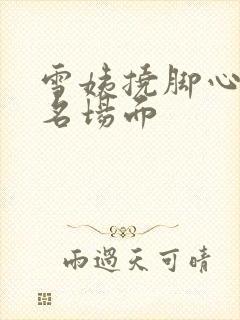 雪姨挠脚心
名场面
雨過天可晴